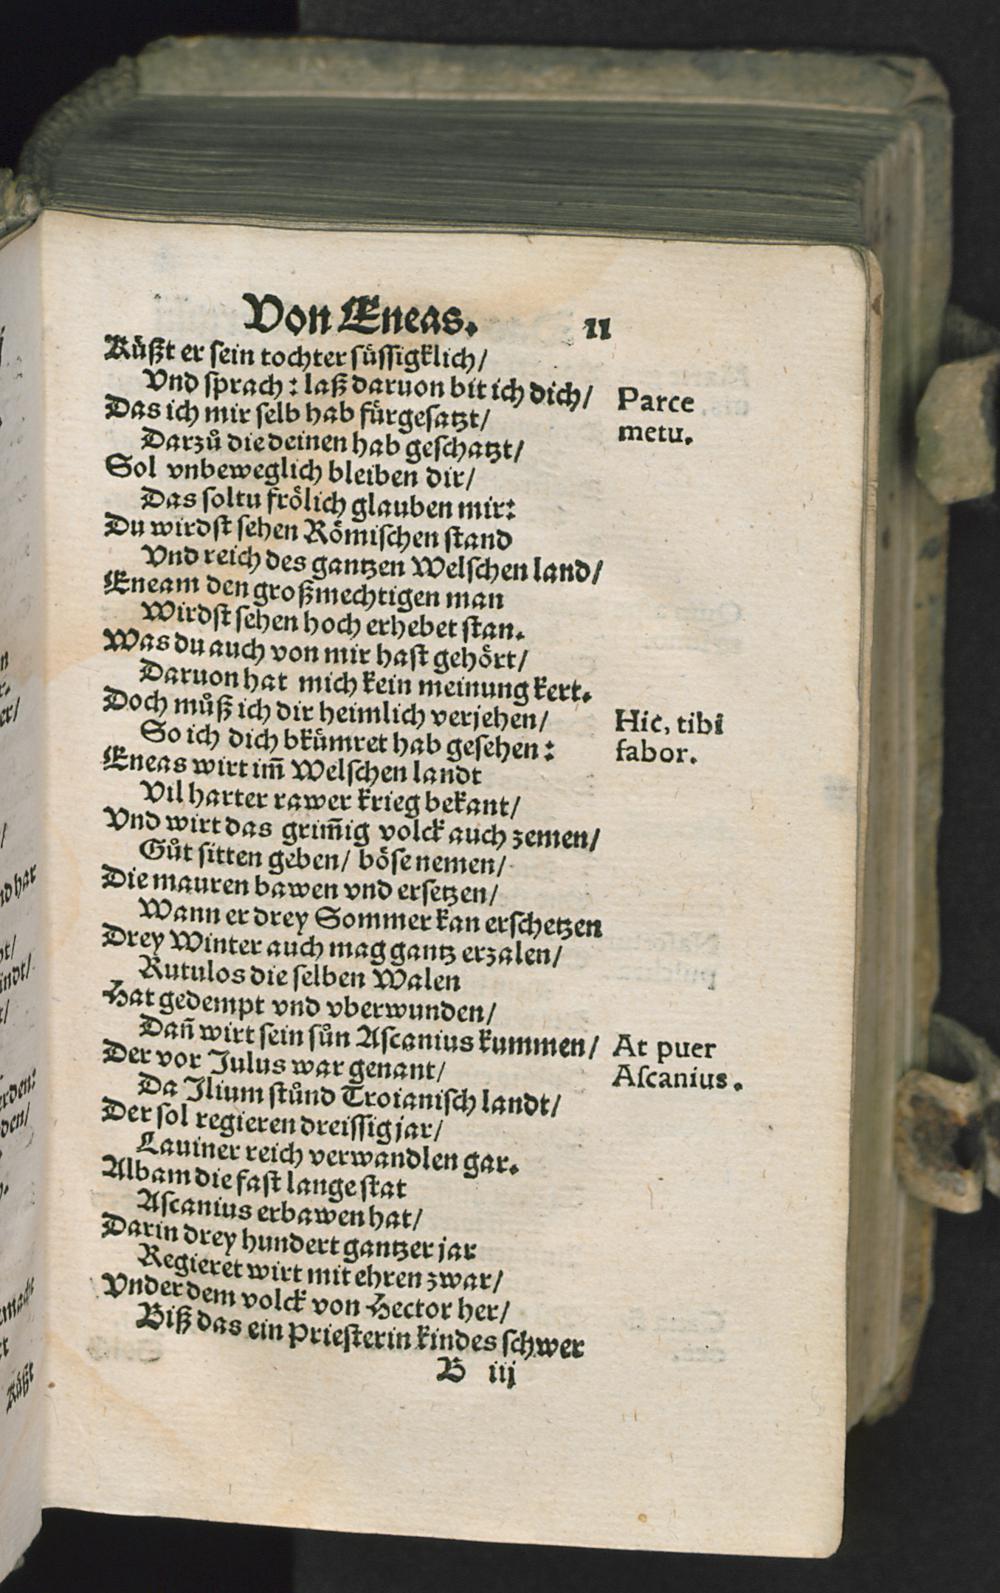 Von Eneas. 11
Küßt er sein tochter süssigklich/
Vnd sprach: laß daruon bit ich dich/
Parce
metu.
Das ich mir selb hab fürgesatzt/
Darzů die deinen hab geschatzt/
Sol vnbeweglich bleiben dir/
Das soltu frölich glauben mir:
Du wirdst sehen Römischen stand
Vnd reich des gantzen Welschen land/
Eneam den großmechtigen man
Wirdst sehen hoch erhebet stan.
Was du auch von mir hast gehört/
Daruon hat mich kein meinung kert.
Doch můß ich dir heimlich verjehen/
Hic, tibi
fabor.
So ich dich bkümret hab gesehen:
Eneas wirt im̃ Welschen landt
Vil harter rawer krieg bekant/
Vnd wirt das grim̃ig volck auch zemen/
Gůt sitten geben/ böse nemen/
Die mauren bawen vnd ersetzen/
Wann er drey Sommer kan erschetzen
Drey Winter auch mag gantz erzalen/
Rutulos die selben Walen
Hat gedempt vnd vberwunden/
Dañ wirt sein sůn Ascanius kummen/
At puer
Ascanius.
Der vor Julus war genant/
Da Ilium stůnd Troianisch landt/
Der sol regieren dreissig jar/
Lauiner reich verwandlen gar.
Albam die fast lange stat
Ascanius erbawen hat/
Darin drey hundert gantzer jar
Regieret wirt mit ehren zwar/
Vnder dem volck von Hector her/
Biß das ein Priesterin kindes schwer
B iij